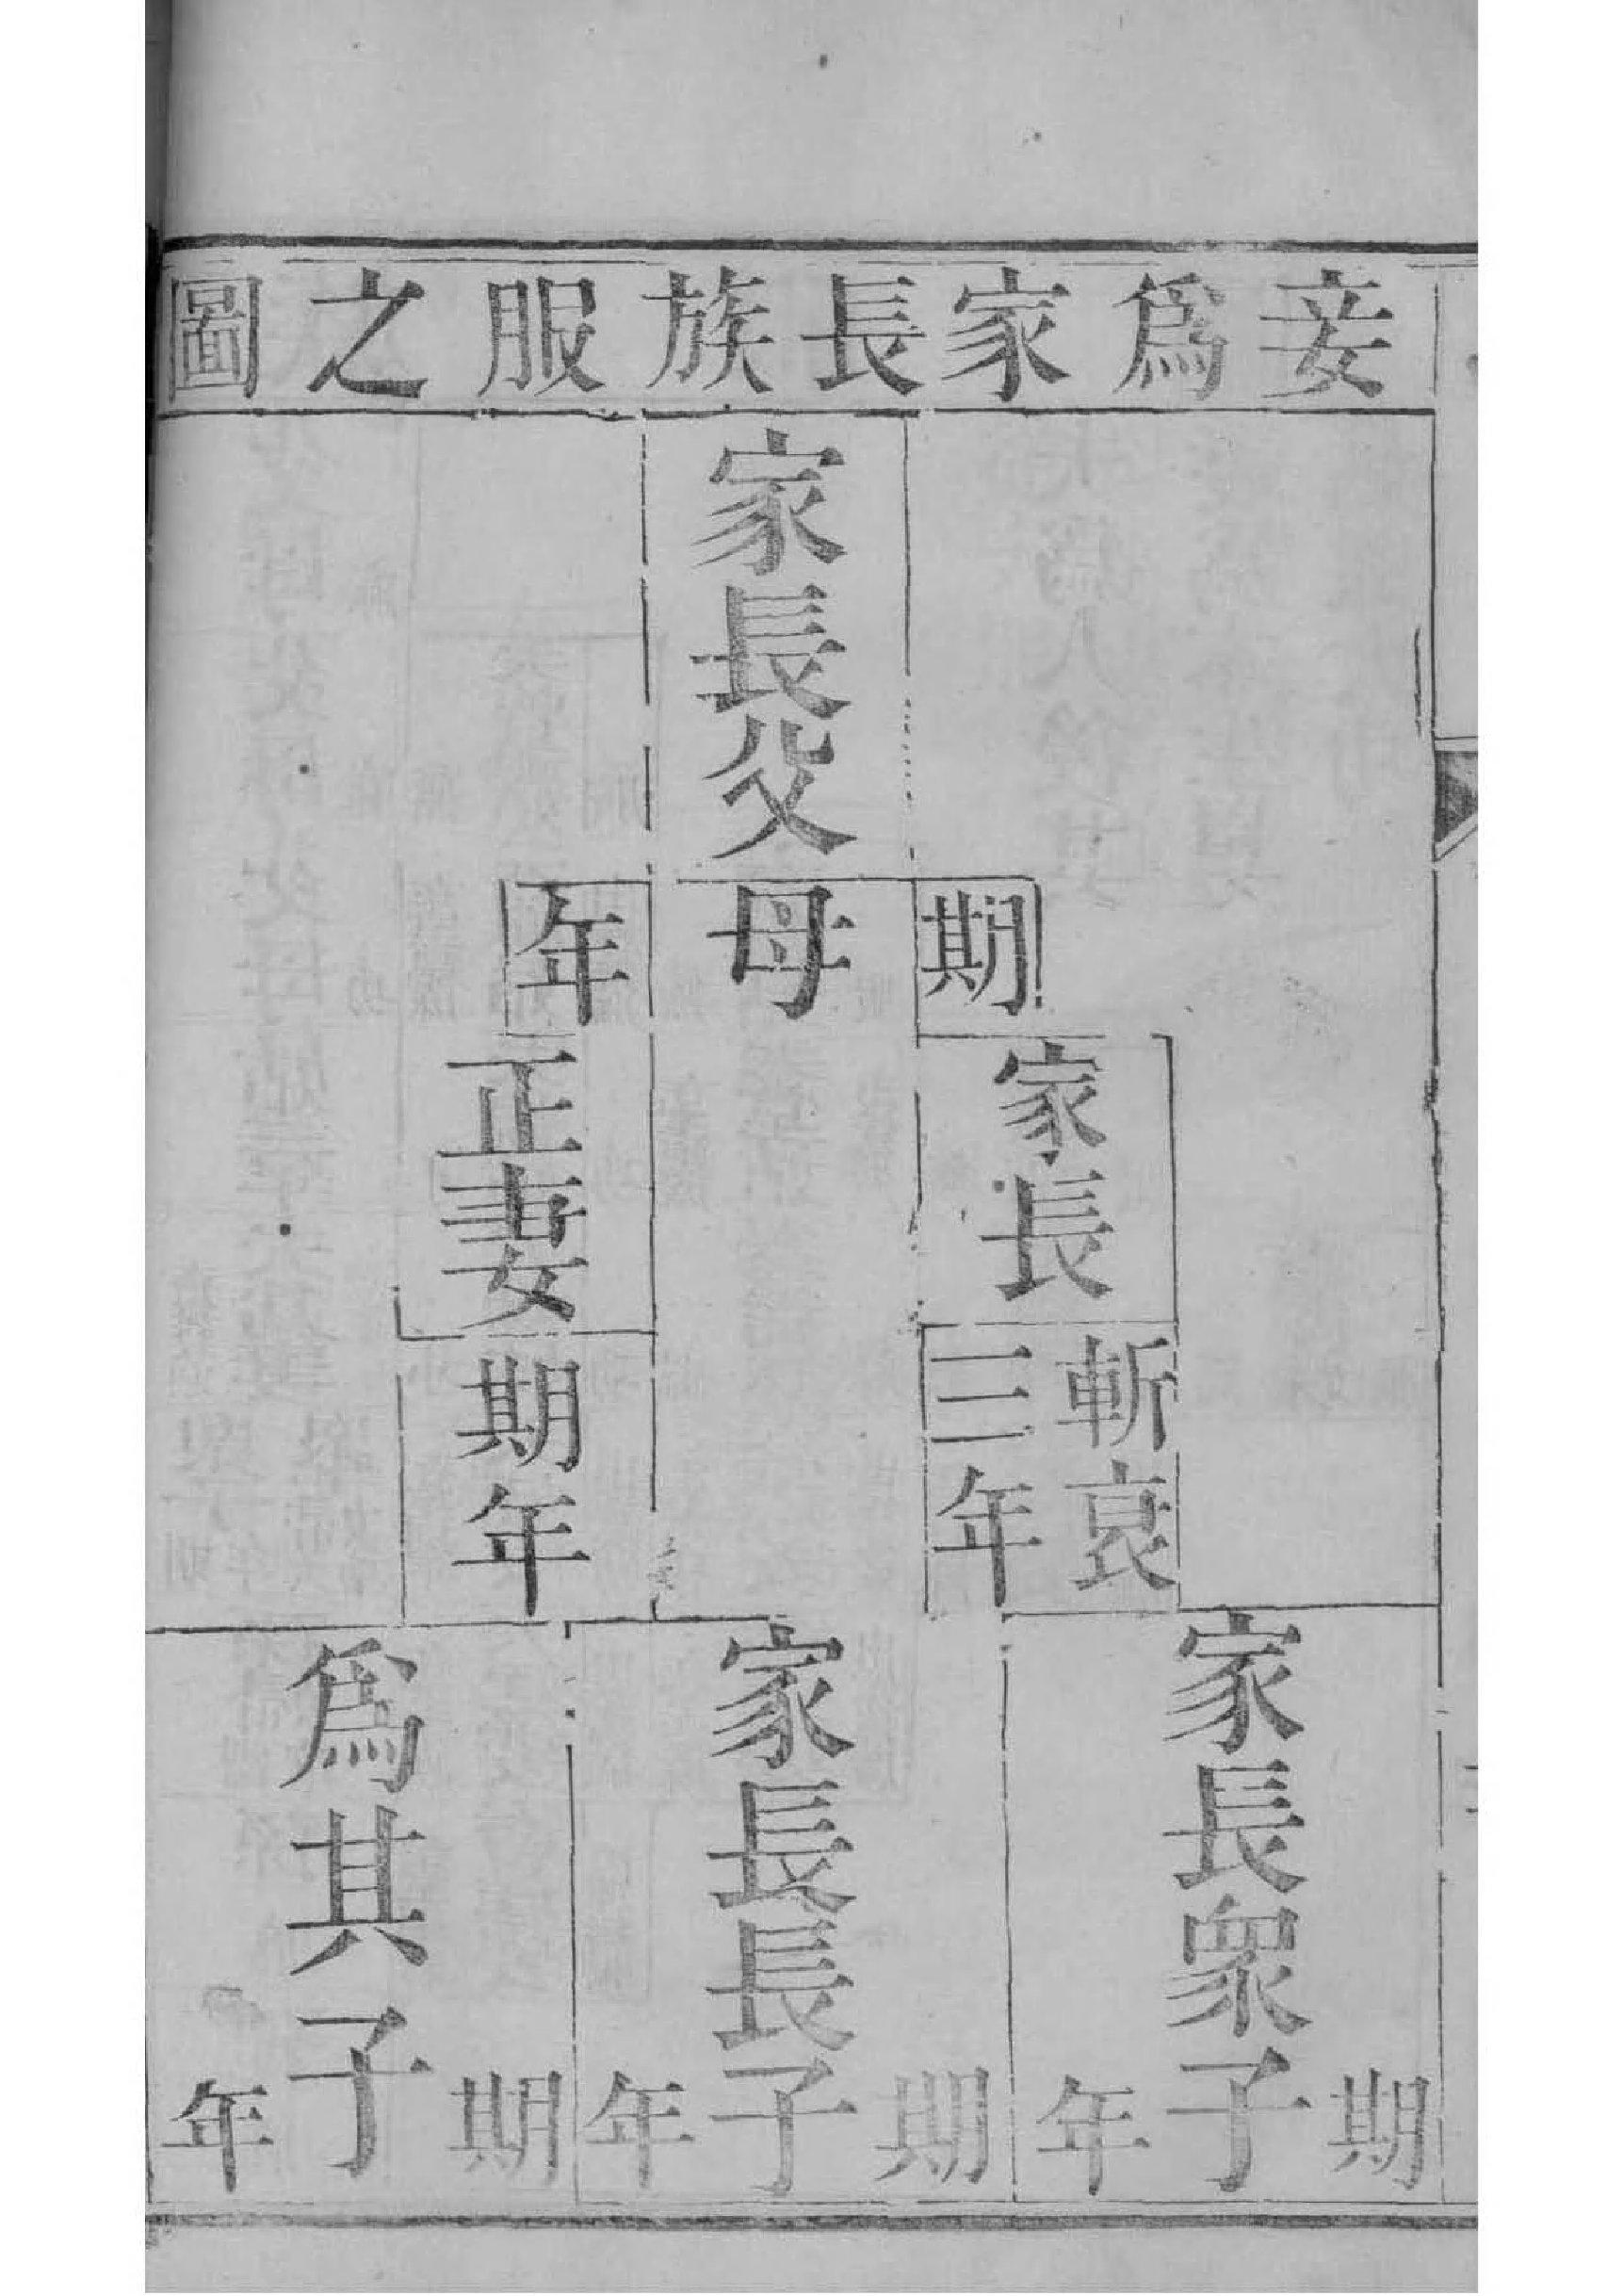 妾爲家長族服之圖
家長父母
期年
家長
斬衰
三年
正妻
期年
家長衆子
期年
家長長子
期年
爲其子
期年